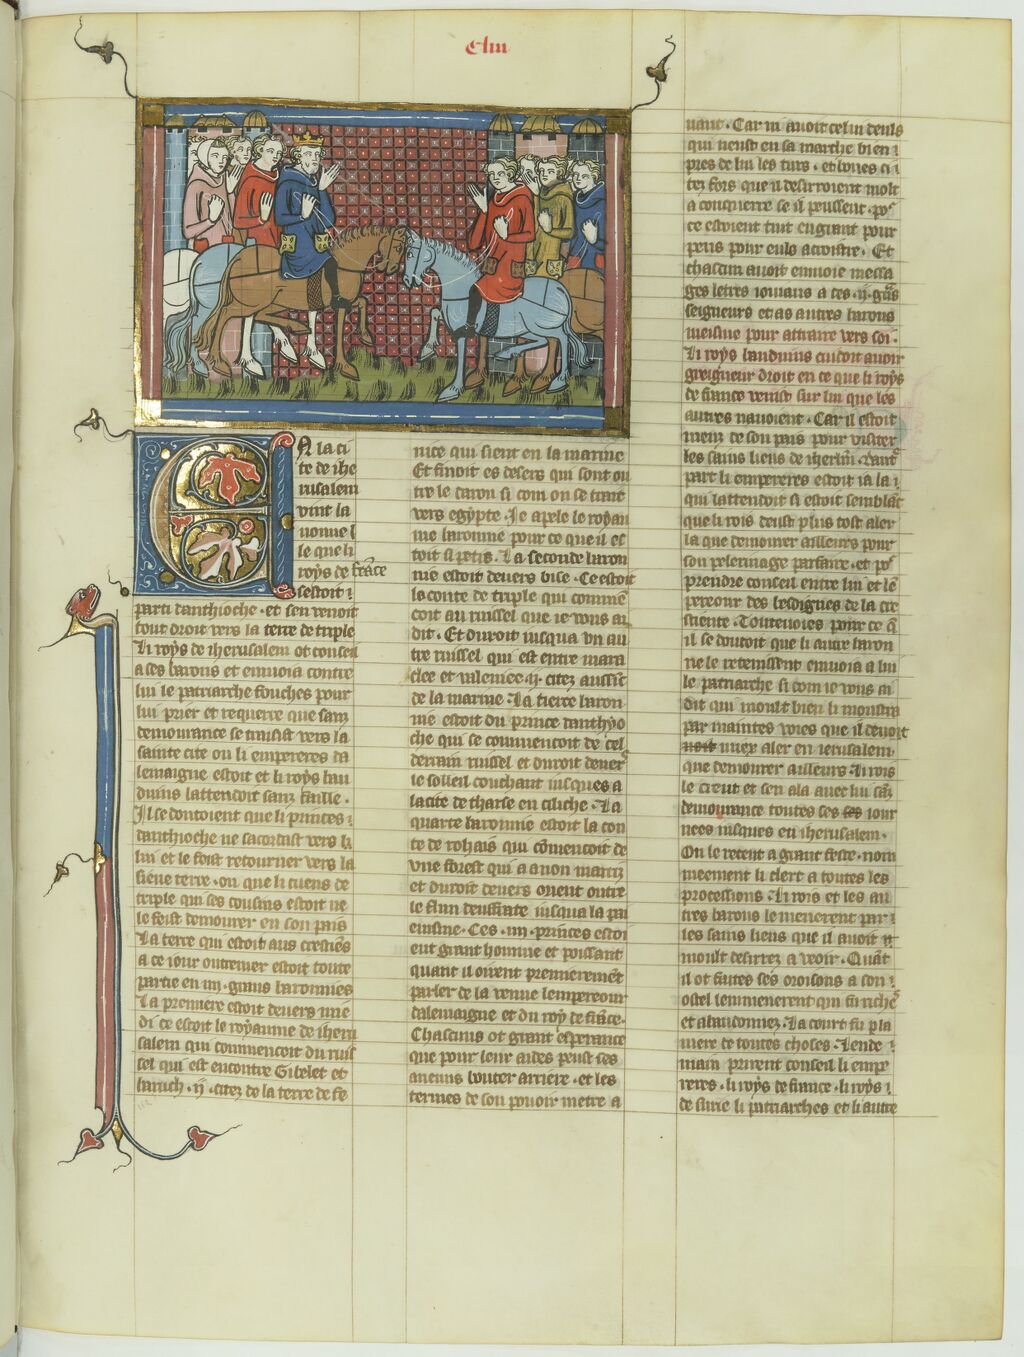 Cliii
En la ci
te de ihe
rusalem
vint la
nonne l
le que li
roÿs de france
sestoit ꝫ
parti danthioche · et sen venoit
tout droit vers la terre de triple
Li roÿs de iherusalem ot conseil
a ses barons et enuoia contre
lui le patriarche fouches pour
lui prier et requerre que sanz
demourance se traisist vers la
sainte cite ou li empereres da
lemaigne estoit et li roÿs bau
duins lattendoit sanz faille ·
Il se doutoient que li princes ꝫ
danthioche ne sacordast vers li
lui et le feist retourner vers la
siene terre · ou que li cuens de
triple qui ses cousins estoit ne
le feist demourer en son pais
La terre qui estoit aus crestiens
a ce iour outremer estoit toute
partie en iiii · granz baronnies
La premiere estoit deuers mie
di ce estoit le roÿaume de iheru
salem qui commencoit du ruis
sel qui est encontre Gibelet et
baruth · ij · citez de la terre de fe
nice qui sient en la marine
Et finoit es desers qui sont ou
tre le daron si com on se trait
vers egÿpte · Je apele le roÿau
me baronnie pour ce que il es
toit si petis · La seconde baron
nie estoit deuers bise · Ce estoit
la conte de triple qui commen
coit au ruissel que ie vous ai
dit · Et duroit iusqua vn au
tre ruissel qui est entre mara
clee et valenie · ij · citez aussi
de la marine · La tierce baron
nie estoit du prince danthÿo
che qui se commencoit de cel
derrain ruissel et duroit deuers
le solleil couchant iusques a
la cite de tharse en ciliche · La
quarte baronnie estoit la con
te de rohais qui commencoit de
vne forest qui a a non marriz
et duroit deuers orient outre
le flun deuffrate iusqua la pai
ennisme · Ces · iiii · princes estoi
ent grant homme et poissant
quant il oirent premierement
parler de la venue lempereour
dalemaigne et du roÿ de france ·
Chascuns ot grant esperance
que pour leur aides peust ses
anemis bouter arriere · et les
termes de son pouoir metre a
uant · Car ni auoit celui deuls
qui neust en sa marche bien ꝫ
pres de lui les turs · et bones ci ꝫ
tez fors que il desirroient molt
a conquerre se il peussent · por
ce estoient tuit en grant pour
pens pour euls acroistre · Et
chascun auoit enuoie messa
ges letres ioiaus a ces · ij · granz
seigneurs et as autres barons
meisme pour attraire vers soi ·
Li roÿs bauduins cuidoit auoir
greigneur droit en ce que li roÿs
de france venist sur lui que les
autres nauoient · Car il estoit
meuz de son pais pour visiter
les sains lieus de iherusalem · dautre
part li empereres estoit ia la ꝫ
qui lattendoit si estoit semblant
que li rois deust plus tost aler
la que demourer ailleurs pour
son pelerinage parfaire · et por
prendre conseil entre lui et lem
pereour des besoignes de la cre
stiente · Toutesuoies pour ce que
il se doutoit que li autre baron
ne le retenissent enuoia a lui
le patriarche si com ie vous ai
dit qui moult bien li monstra
par maintes voies que il deuoit
miex aler en ierusalem
que demourer ailleurs · Li rois
le creut et sen ala auec lui sanz
demourance toutes ses iour
nees iusques en iherusalem ·
On le recut a grant feste · nom
meement li clerc a toutes les
processions · Li rois et les au
tres barons le menerent par ꝫ
les sains lieus que il auoit
moult desirrez a veoir · Quant
il ot faites ses oroisons a son ꝫ
ostel lenmenerent qui fu riches
et abandonnez · La court fu pla
niere de toutes choses · Lende ꝫ
main prirent conseil li empe
reres · li roÿs de france · li roÿs ꝫ
de surie li patriarches et li autre